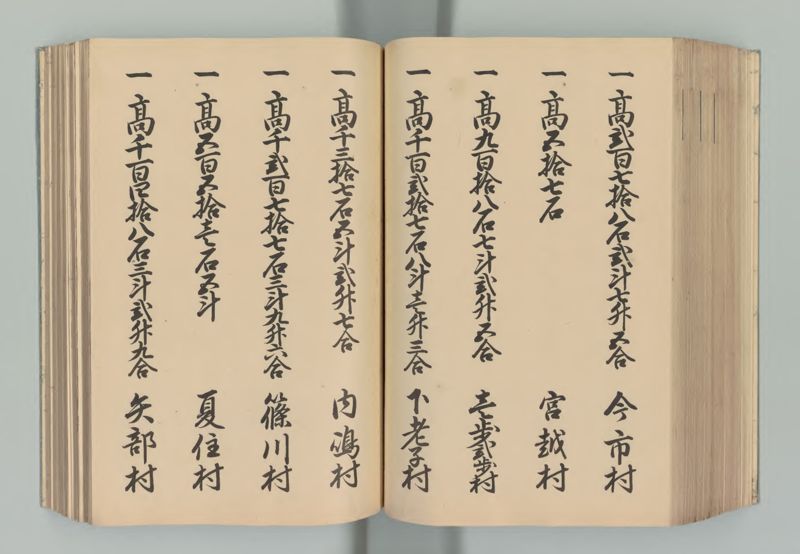 一 高弐百七拾八石弐斗七升五合 今市村
一 高五拾七石 宮越村
一 高九百拾八石七斗弐升五合 壱歩弐歩村
一 高千百弐拾七石八斗壱升三合 下老子村
一 高千三拾七石五斗弐升七合 内嶋村
一 高千弐百七拾七石三斗九升六合 篠川村
一 高五百五拾壱石五斗 夏住村
一 高千百四拾八石三斗弐升九合 矢部村